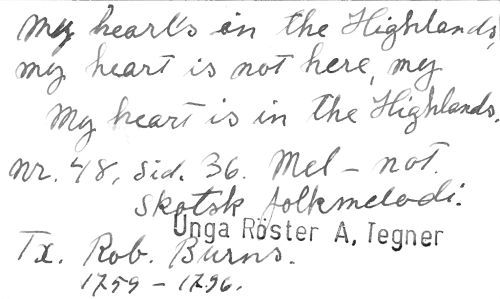 my heart's in the Highlands,
my heart is not here, my
my heart is in the Highlands.
nr. 48, sid. 36. Mel – not.
skotsk folkmelodi.
Unga Röster A. Tegner
Tx. Rob. Burns.
1759 – 1796.